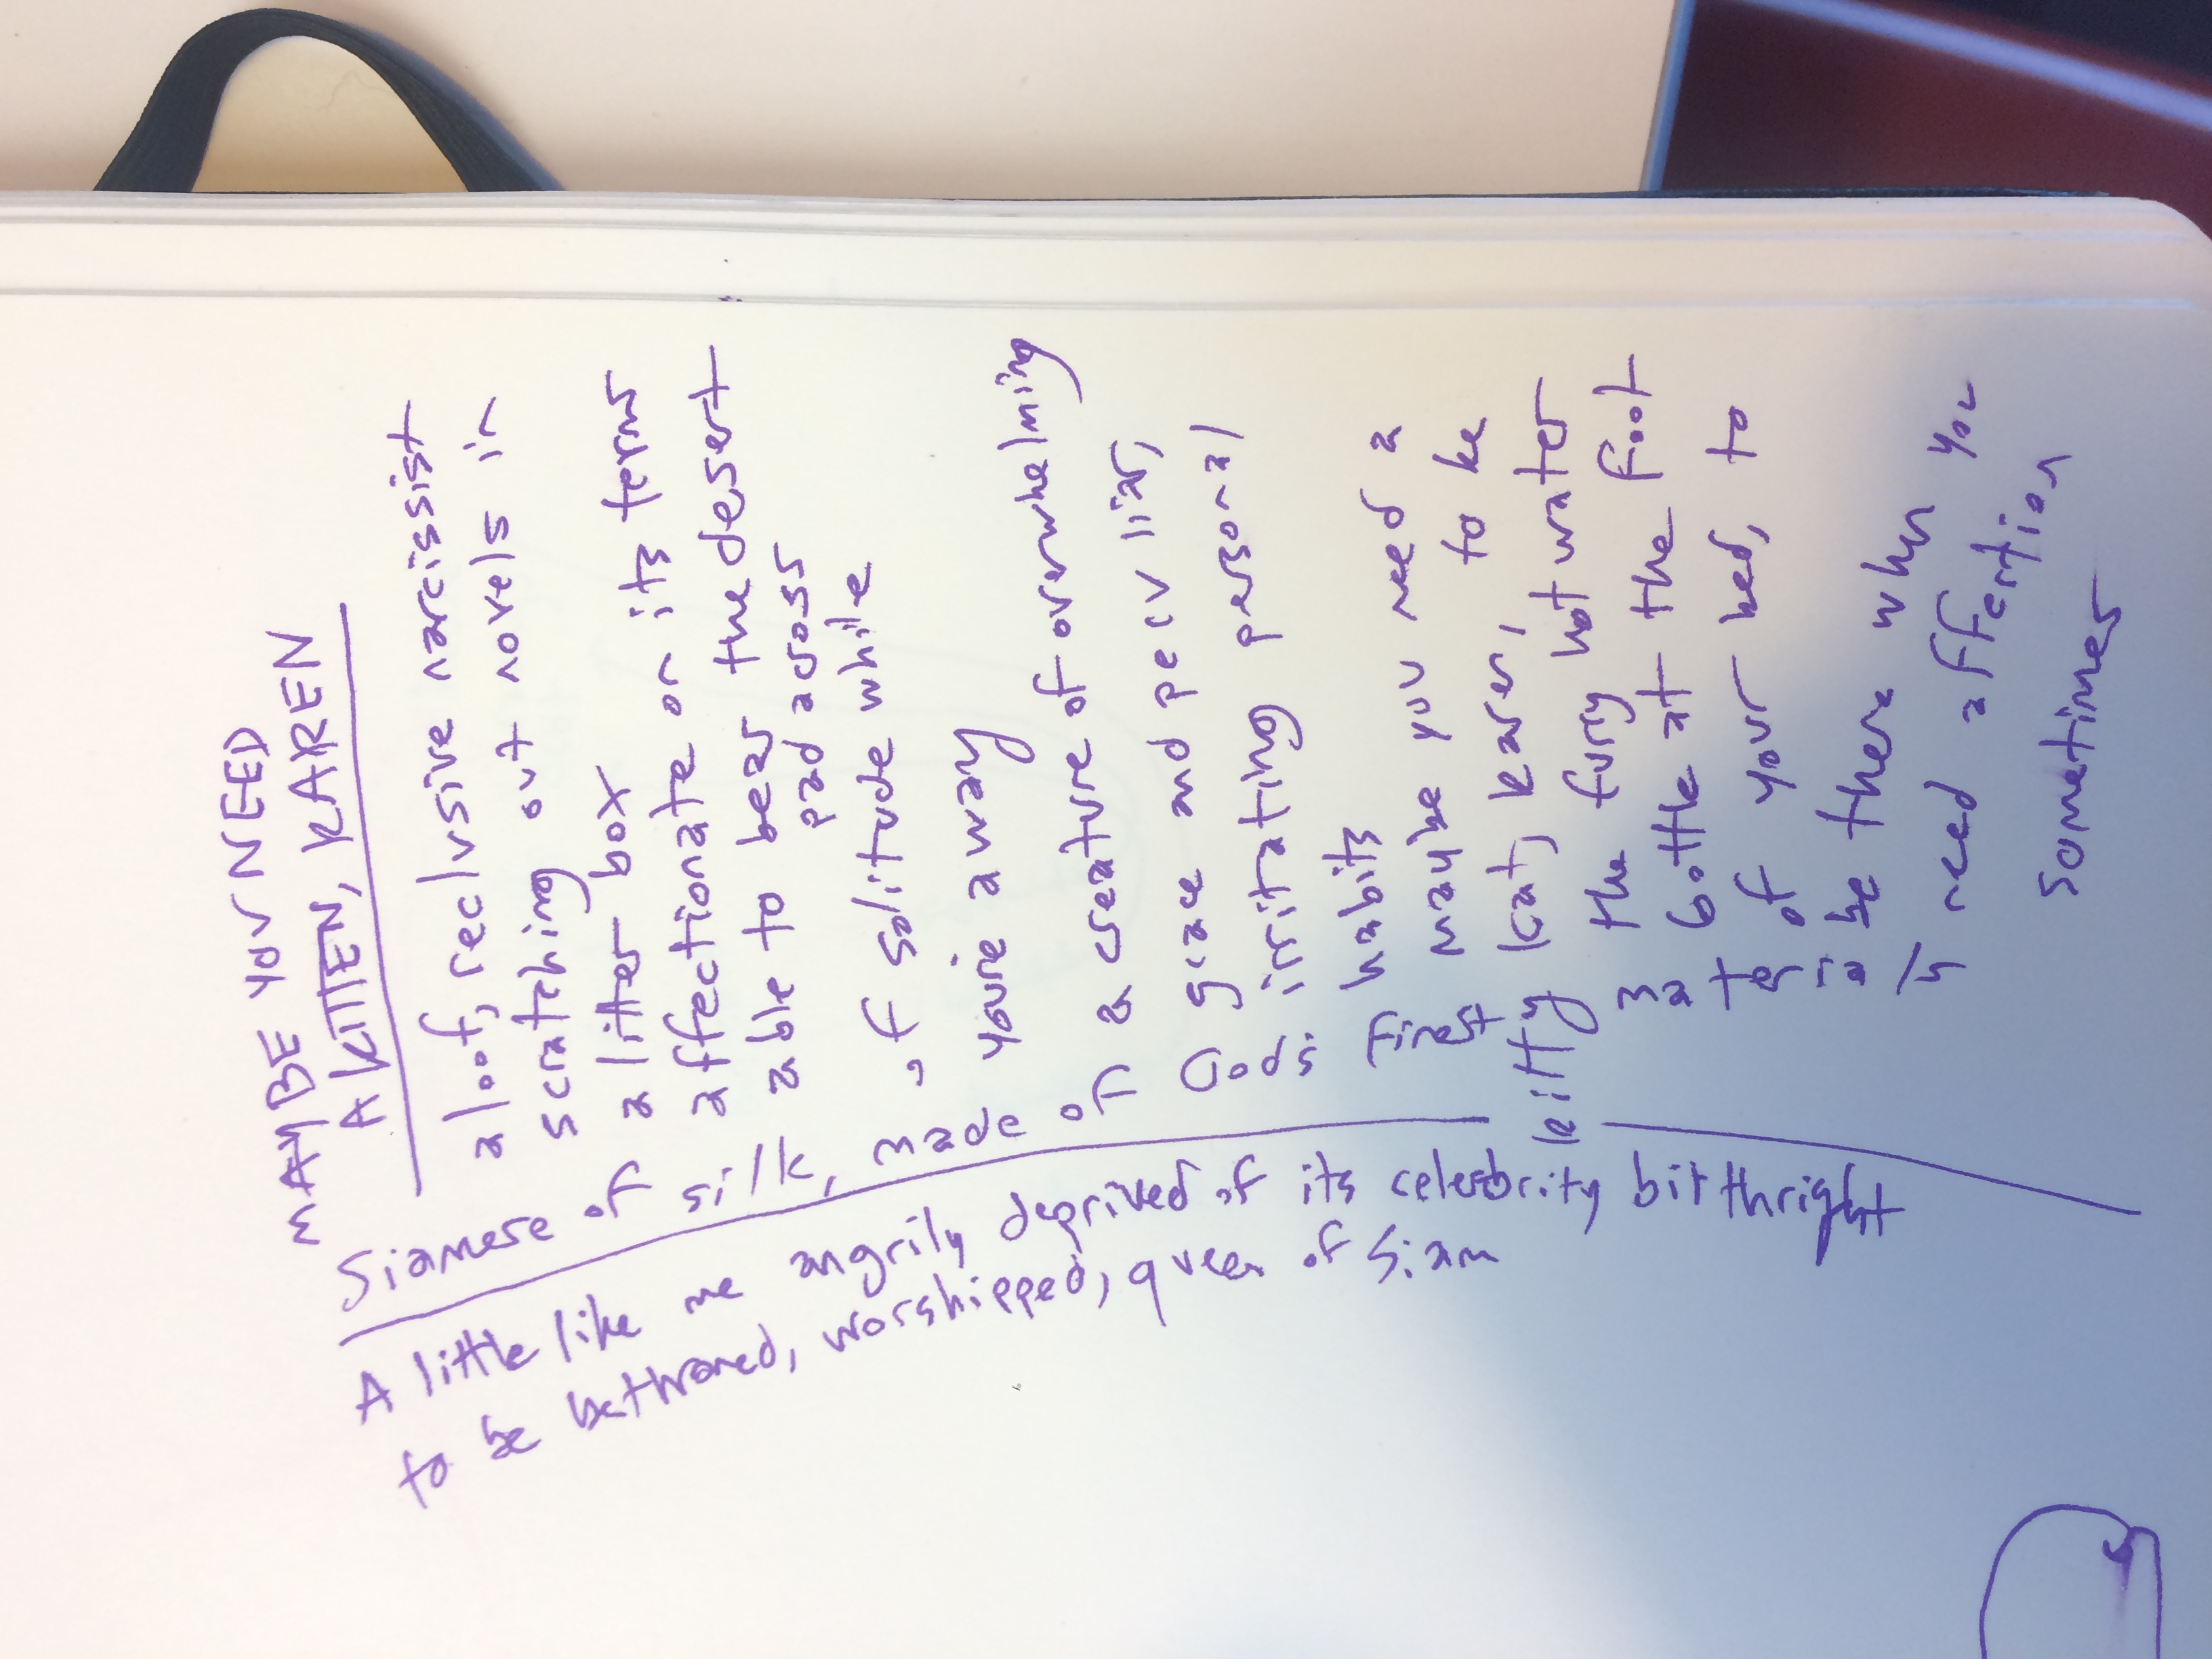 MAYBE YOU NEED
A KITTEN, KAREN
aloof, reclusive narcissist
scratching out novels in
a litter box
affectionate on its terms
able to bear the desert
pad across
of solitude while
you're away
a creature of overwhelming
grace and peculiar,
irritating personal
habits
maybe you need a
kitty kat, karen, to be
the furry hot water
bottle at the foot
of your bed, to
be there when you
need affection
sometimes
Siamese of silk, made of Gods finest kitty material
A little like me angrily deprived of its celebrity birthright
to be bethroned, worshipped, queen of Siam